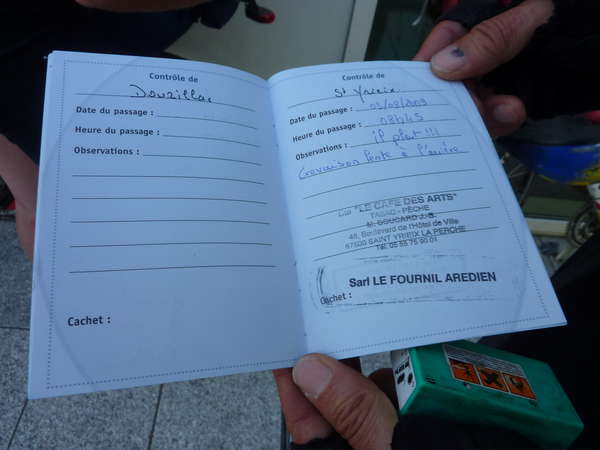 Contrôle de
Douzillac
Date du passage :
Heure du passage :
Observations :
Cachet :
Contrôle de
St Yrieix
Date du passage : 03/08/2009
Heure du passage : 08h45
Observations : il pleut !!!
Crevaison lente à l'avière
"LE CAFE DES ARTS"
TABAC - PÊCHE
M. GOUCARD J.-B.
48, Boulevard de l'Hôtel de Ville
87500 SAINT YRIEIX LA PERCHE
Tél. 05 55 75 90 01
Sarl LE FOURNIL AREDIEN
Cachet :